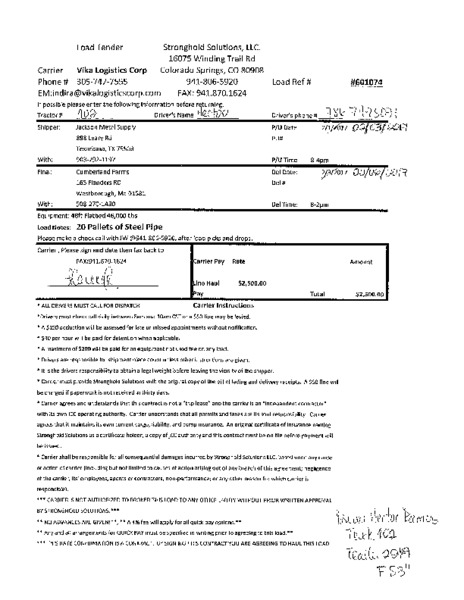 Load Tender Stronghold Solutions, LLC.
16075 Winding Trail Rd
Carrier Vika Logistics Corp Colorado Springs, CO 80908
Phone # 305-747-7555 941-806-5920 Load Ref # #601074
EM:indira@vikalogisticscorp.com FAX: 941.870.1624
If possible please enter the following information before returning.
Tractor # 402 Driver's Name Hector Driver's phone #
Shipper: Jackson Metal Supply P/U Date
898 Leary Rd P.U#
Texarkana, TX
With: 903-792-1137 P/U Time 8-4pm
Final: Cumberland Farms Del Date:
165 Flanders RD Del #
Westborough, Ma 01581
With: 508 270-1430 Del Time: 8-2pm
Equipment: 48ft Flatbed 46,000 lbs
Load Notes: 20 Pallets of Steel Pipe
Please make a check call with JW @941-806-5920, after load picks and drops.
Carrier, Please sign and date then fax back to
FAX:941.870.1624 Carrier Pay Rate Amount
Line Haul $2,500.00
Pay Total $2,500.00
* ALL DRIVERS MUST CALL FOR DISPATCH Carrier Instructions
* Driver must check call daily between 8am and 10am CST or a $50 fine may be levied.
* A $100 deduction will be assessed for late or missed appointments without notification.
* $40 per hour will be paid for detention when applicable.
* A maximum of $200 will be paid for an equipment not used fee on any load.
* Drivers are responsible for
* It is the drivers responsibility to obtain a legal weight before leaving the vicinity of the shipper.
* Carrier must provide Stronghold Solutions with the original copy of the bill of lading and delivery receipts. A $50 fine will
be charged if paperwork is not received in thirty days.
* Carrier agrees and understands that this contract is not a "trip lease" and the carrier is an "independent contractor"
with its own ICC operating authority. Carrier understands that all permits and taxes are its own responsibility. Carrier
agrees that it maintains its own current cargo, liability, and comp insurance. An original certificate of insurance naming
Stronghold Solutions as a certificate holder, a copy of ICC authority and this contract must be on file before payment will
be issued.
* Carrier shall be responsible for all consequential damages incurred by Stronghold Solutions LLC. based upon any
or action of carrier (including but not limited to causes of action arising out of any breach of this agreement, negligence
of the carrier, its employees, agents or contractors, non-performance, or any other reason for which carrier is
responsible.
*** CARRIER IS NOT AUTHORIZED TO BROKER THIS LOAD TO ANY OTHER PARTY WITHOUT PRIOR WRITTEN APPROVAL
BY STRONGHOLD SOLUTIONS.***
** NO ADVANCES ARE GIVEN! **, ** A 4% fee will apply for all quick pay options. **
** Any and all arrangements for QUICK PAY must be specified in writing prior to agreeing to this load.**
*** THIS RATE CONFIRMATION IS A CONTRACT. BY SIGNING THIS CONTRACT YOU ARE AGREEING TO HAUL THIS LOAD
Hector Ramos
Truck 402
F 53"